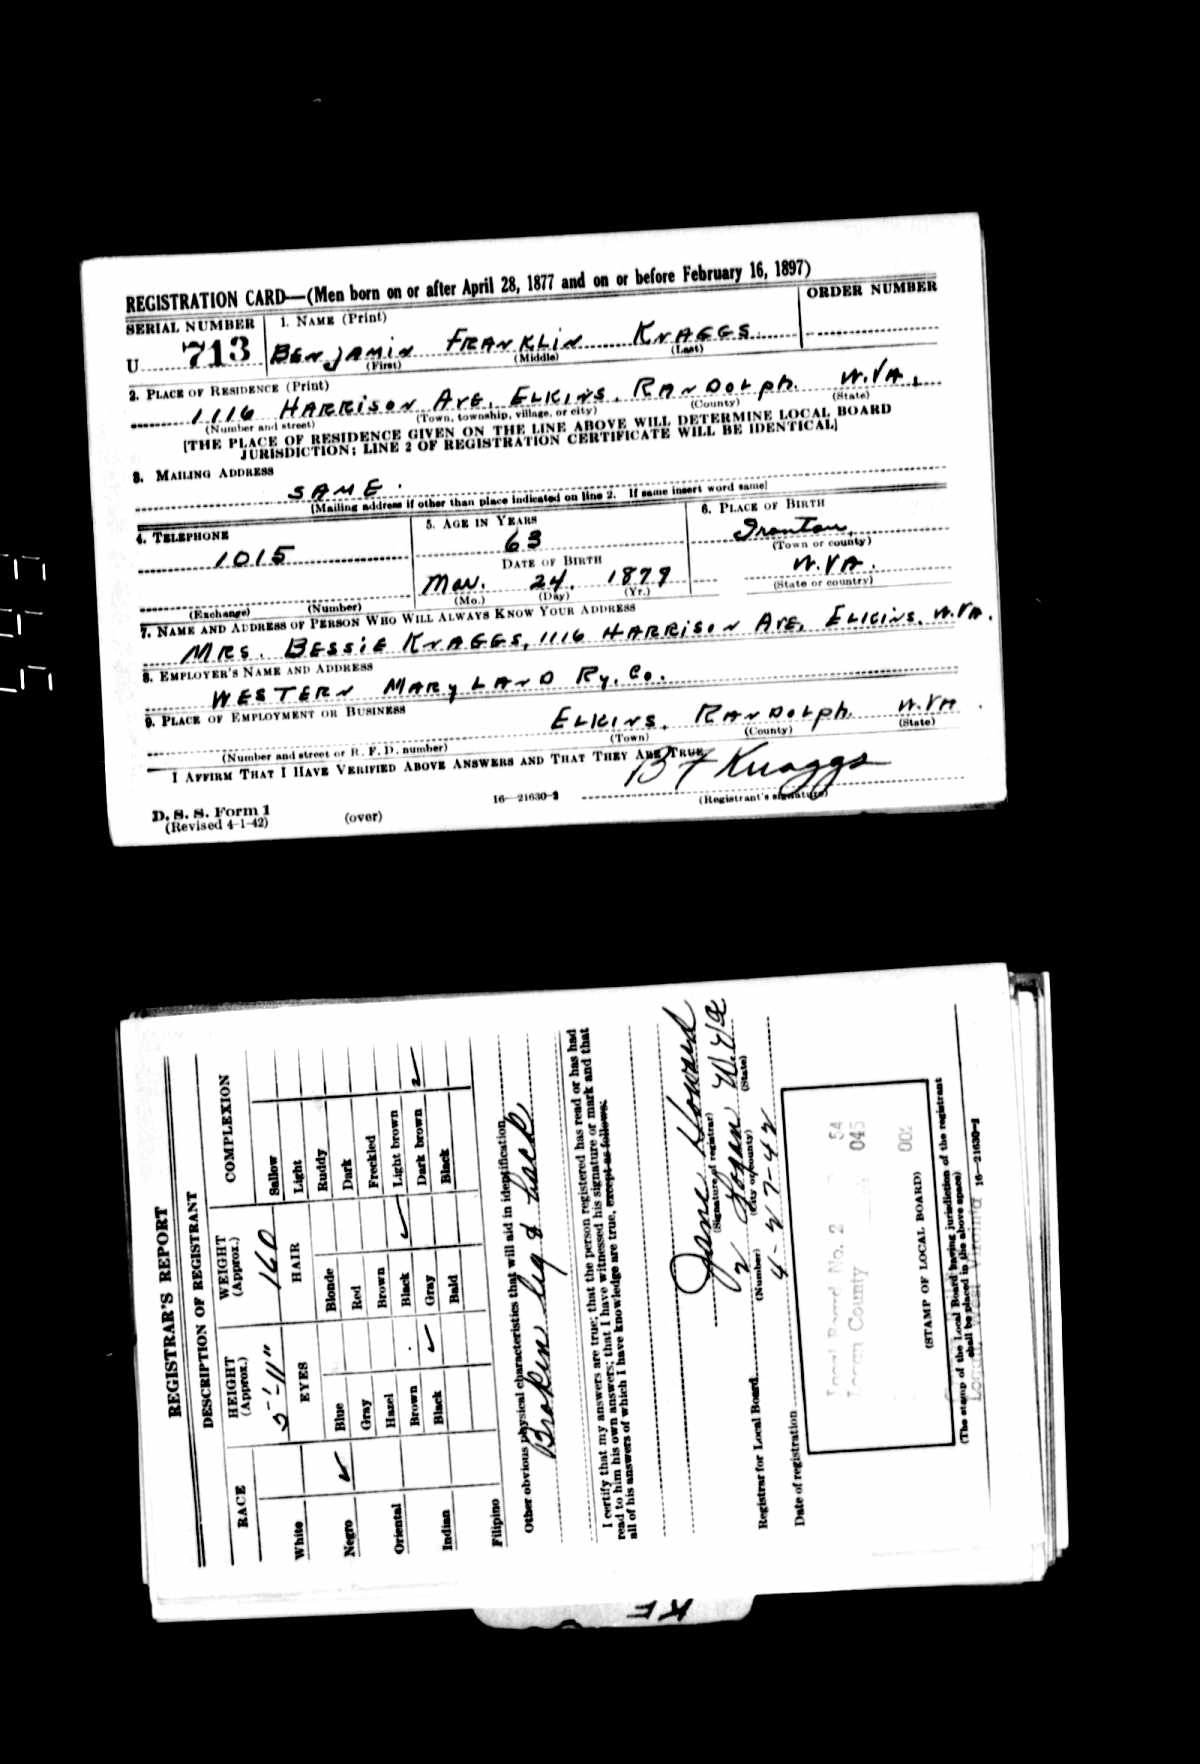 REGISTRATION CARD—(Men born on or after April 28, 1877 and on or before February 16, 1897)
SERIAL NUMBER
1. NAME (Print)
ORDER NUMBER
U 713
BENJAMIN FRANKLIN KNAGGS
(First) (Middle) (Last)
2. PLACE OF RESIDENCE (Print)
1116 HARRISON AVE. ELKINS. RANDOLPH. W.VA.
(Number and street) (Town, township, village, or city) (County) (State)
[THE PLACE OF RESIDENCE GIVEN ON THE LINE ABOVE WILL DETERMINE LOCAL BOARD
JURISDICTION; LINE 2 OF REGISTRATION CERTIFICATE WILL BE IDENTICAL]
3. MAILING ADDRESS
SAME.
[Mailing address if other than place indicated on line 2. If same insert word same]
4. TELEPHONE
1015
(Exchange) (Number)
5. AGE IN YEARS
63
DATE OF BIRTH
Mar. 24. 1879
(Mo.) (Day) (Yr.)
6. PLACE OF BIRTH
Ironton,
(Town or county)
W.VA.
(State or country)
7. NAME AND ADDRESS OF PERSON WHO WILL ALWAYS KNOW YOUR ADDRESS
MRS. BESSIE KNAGGS, 1116 HARRISON AVE. ELKINS. W.VA.
8. EMPLOYER'S NAME AND ADDRESS
WESTERN MARYLAND Ry. Co.
9. PLACE OF EMPLOYMENT OR BUSINESS
ELKINS. RANDOLPH. W.VA
(Number and street or R. F. D. number) (Town) (County) (State)
I AFFIRM THAT I HAVE VERIFIED ABOVE ANSWERS AND THAT THEY ARE TRUE.
B F Knaggs
(Registrant's signature)
D. S. S. Form 1
(Revised 4-1-42)
(over)
16—21630-2
REGISTRAR'S REPORT
DESCRIPTION OF REGISTRANT
RACE
HEIGHT
(Approx.)
WEIGHT
(Approx.)
COMPLEXION
5'-11"
160
EYES
HAIR
White
Negro ✓
Oriental
Indian
Filipino
Blue
Gray
Hazel
Brown
Black ✓
Blonde
Red
Brown
Black ✓
Gray
Bald
Sallow
Light
Ruddy
Dark
Freckled
Light brown
Dark brown ✓
Black
Other obvious physical characteristics that will aid in identification
Broken leg & back
I certify that my answers are true; that the person registered has read or has had
read to him his own answers; that I have witnessed his signature or mark and that
all of his answers of which I have knowledge are true, except as follows:
Jane Howard
(Signature of registrar)
Registrar for Local Board 2 Logan W.Va
(Number) (City or county) (State)
Date of registration 4-27-42
Local Board No. 2 54
Logan County 045
002
(STAMP OF LOCAL BOARD)
(The stamp of the Local Board having jurisdiction of the registrant
shall be placed in the above space)
Logan, West Virginia
16—21630-2
KE